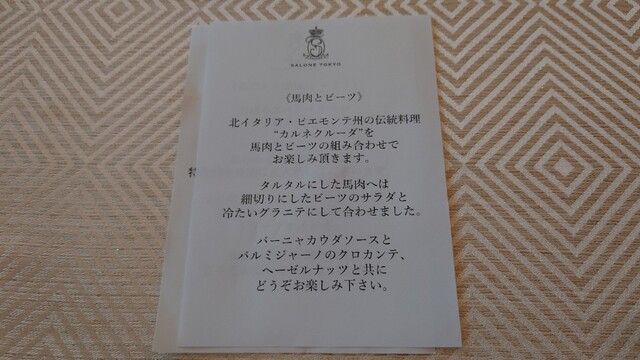 SALONE TOKYO
《馬肉とビーツ》
北イタリア・ピエモンテ州の伝統料理
“カルネクルーダ”を
馬肉とビーツの組み合わせで
お楽しみ頂きます。
タルタルにした馬肉へは
細切りにしたビーツのサラダと
冷たいグラニテにして合わせました。
バーニャカウダソースと
パルミジャーノのクロカンテ、
ヘーゼルナッツと共に
どうぞお楽しみ下さい。